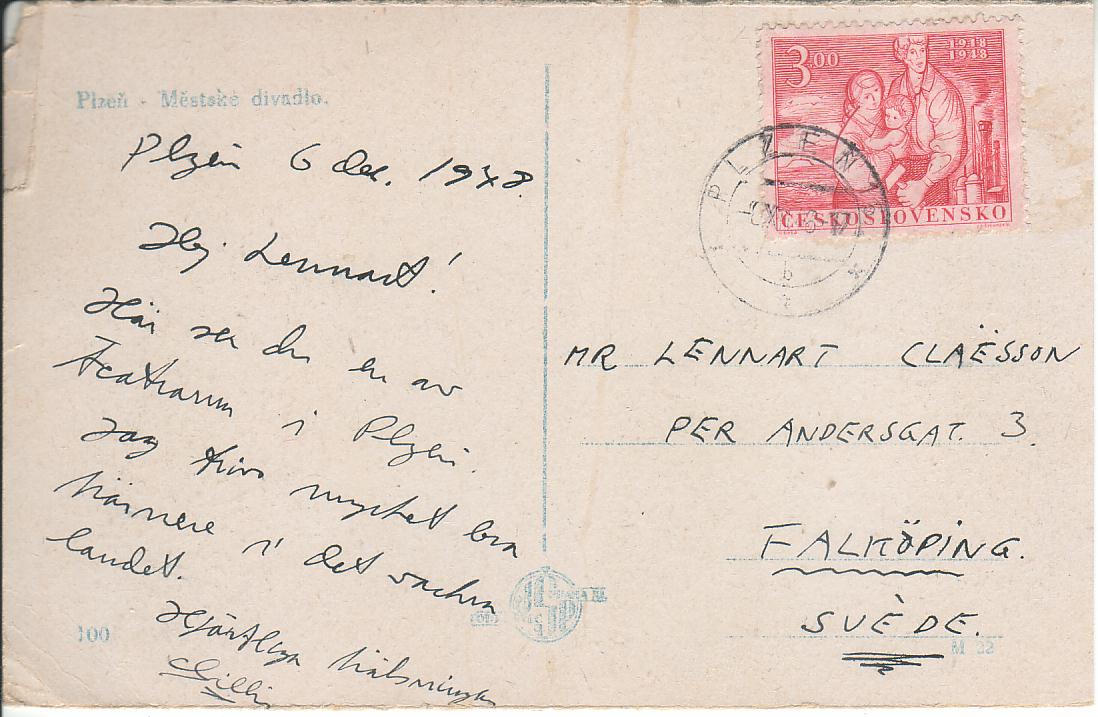 Plzeň - Městské divadlo.
Plzen 6 dec. 1948
Hej Lennart!
Här ser du en av
Teatrarna i Plzen.
Jag trivs mycket bra
härnere i det vackra
landet.
Hjärtliga hälsningar
100
3.00
1918
1948
ČESKOSLOVENSKO
PLZEŇ
b
MR LENNART CLAËSSON
PER ANDERSGAT. 3.
FALKÖPING.
SUÈDE.
M 22